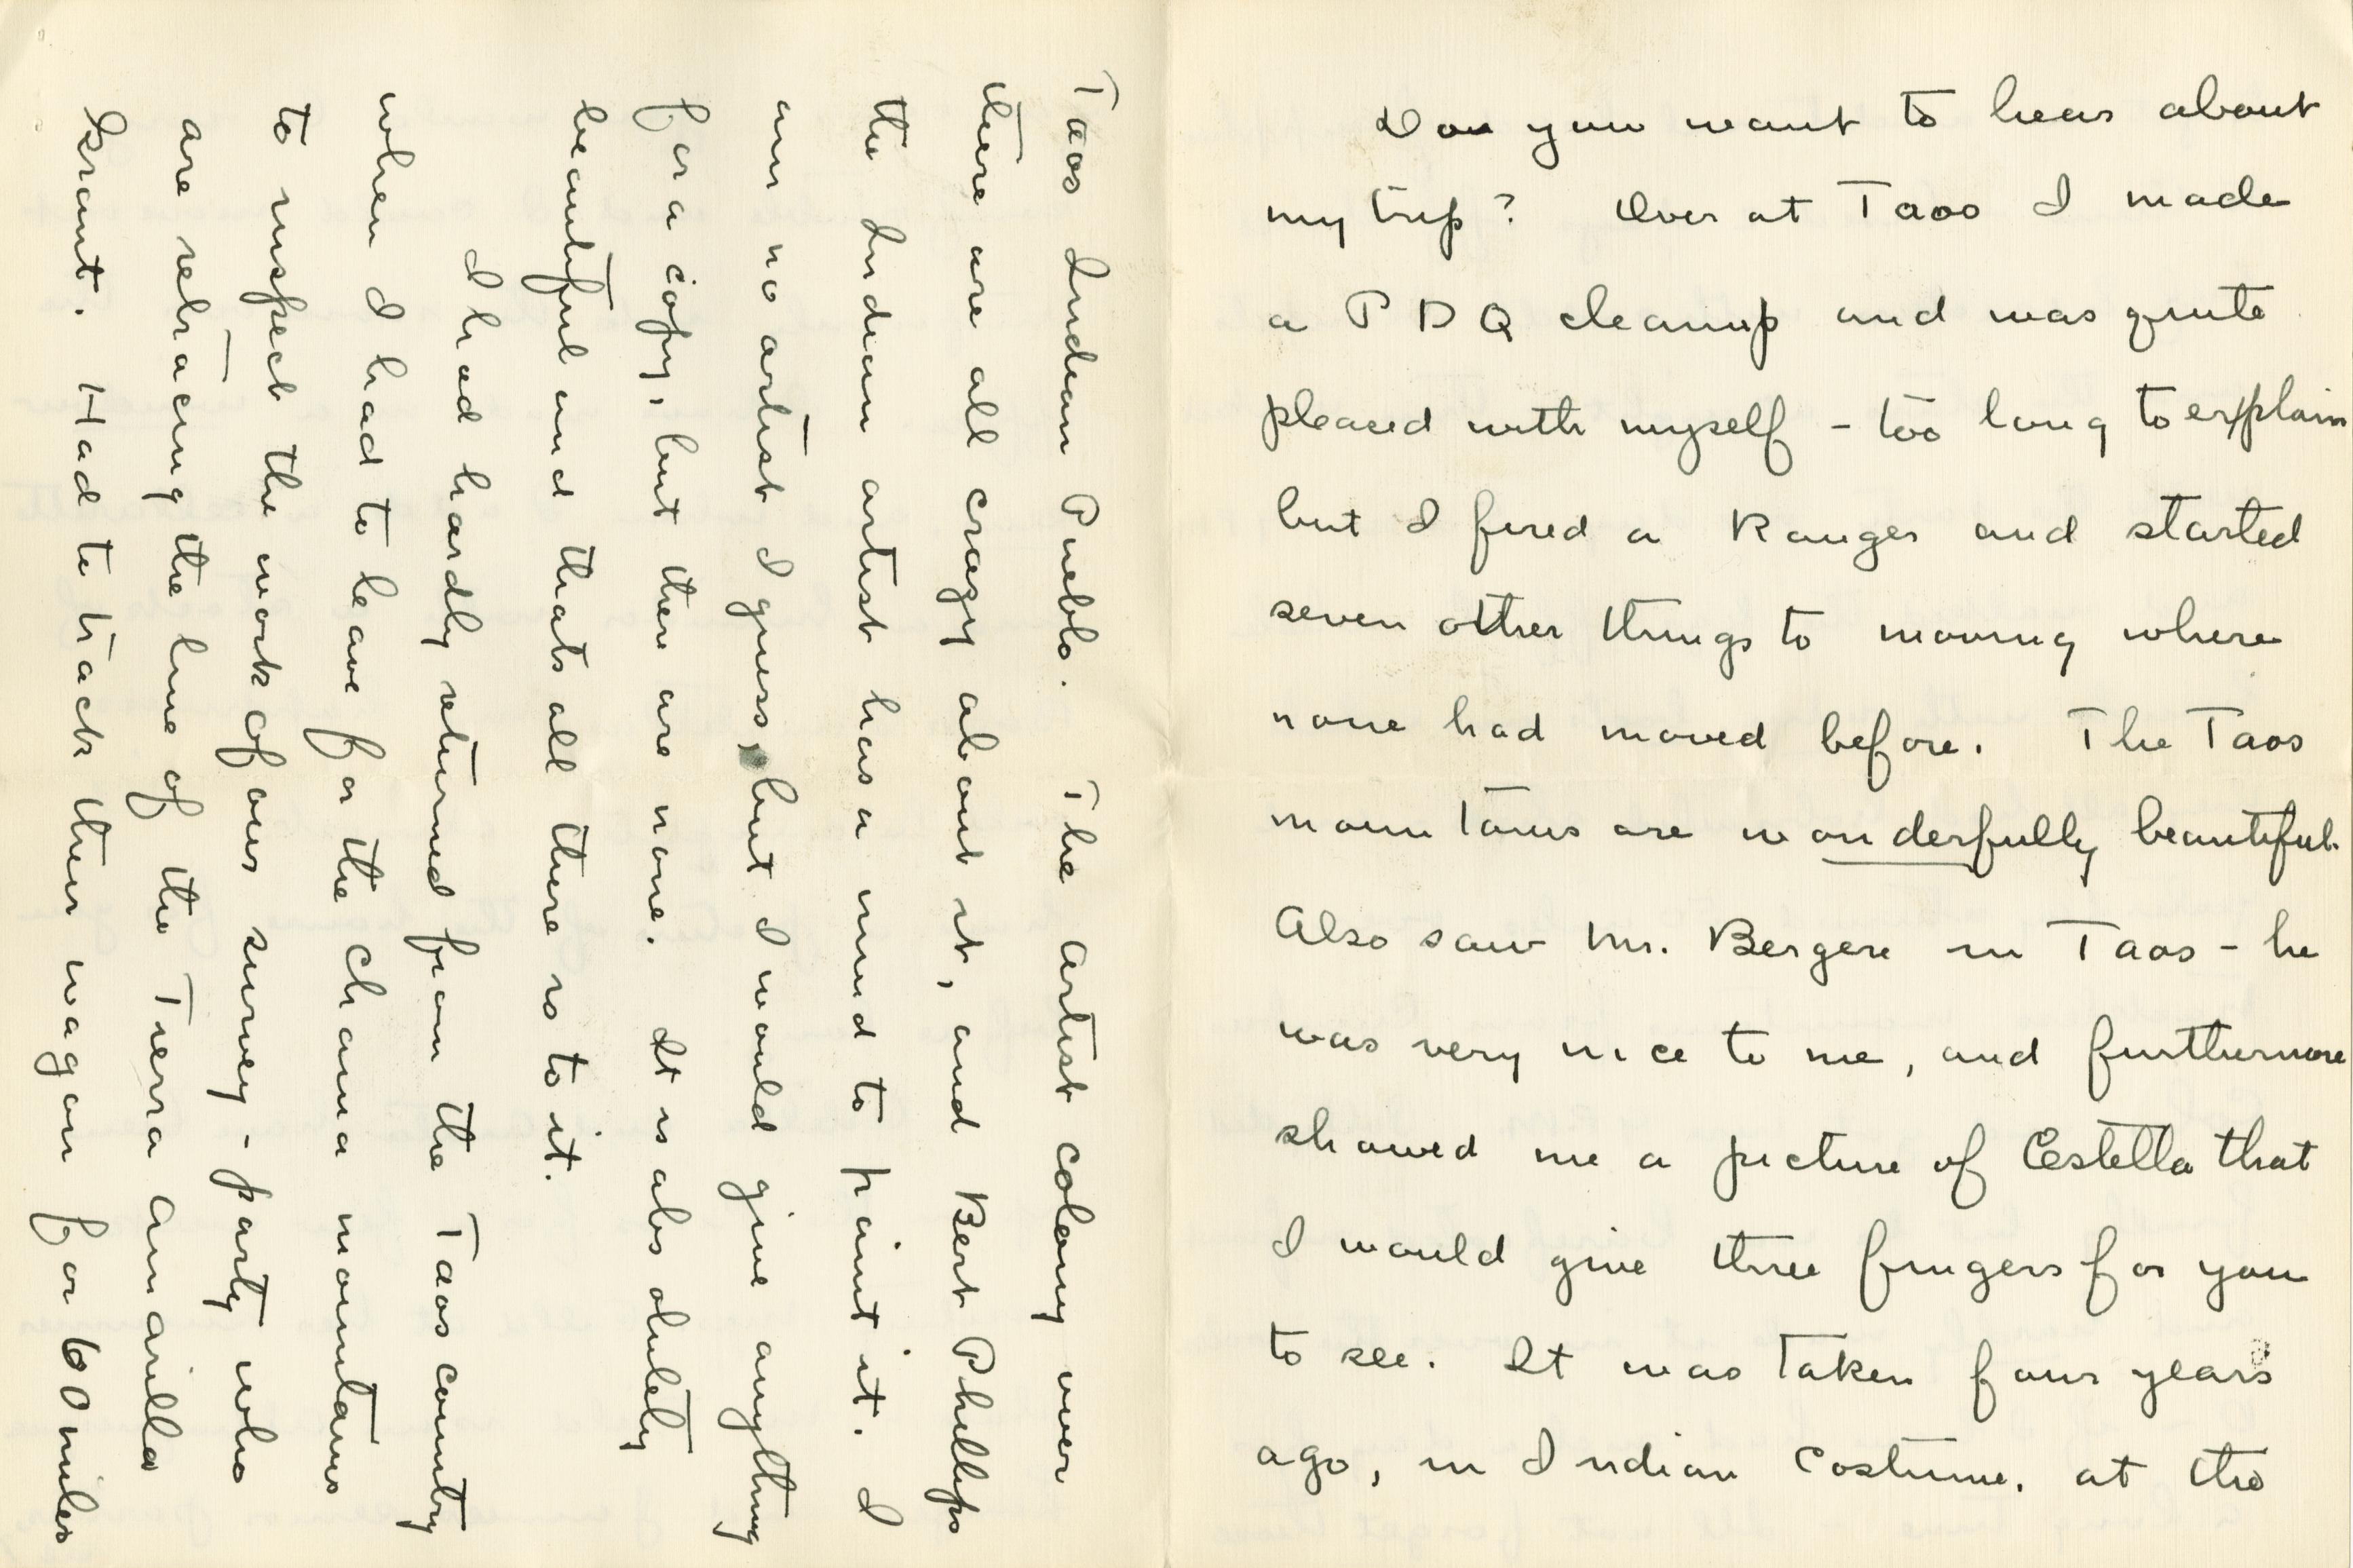 Don you want to hear about
my trip? Over at Taos I made
a PDQ cleanup and was quite
pleased with myself - too long to explain
but I fired a Ranger and started
seven other things to moving where
none had moved before. The Taos
mountains are wonderfully beautiful.
Also saw Mr. Bergere in Taos - he
was very nice to me, and furthermore
showed me a picture of Estella that
I would give three fingers for you
to see. It was taken four years
ago, in Indian Costume, at the
Taos Indian Pueblo. The Artist colony over
there are all crazy about it, and Bert Phillips
the Indian artist has a mind to paint it. I
am no artist I guess, but I would give anything
for a copy, but there are none. It is absolutely
beautiful and thats all there is to it.
I had hardly returned from the Taos country
when I had to leave for the Chama mountains
to inspect the work of our survey - party who
are retracing the line of the Tierra Amarilla
Grant. Had to track their wagon for 60 miles